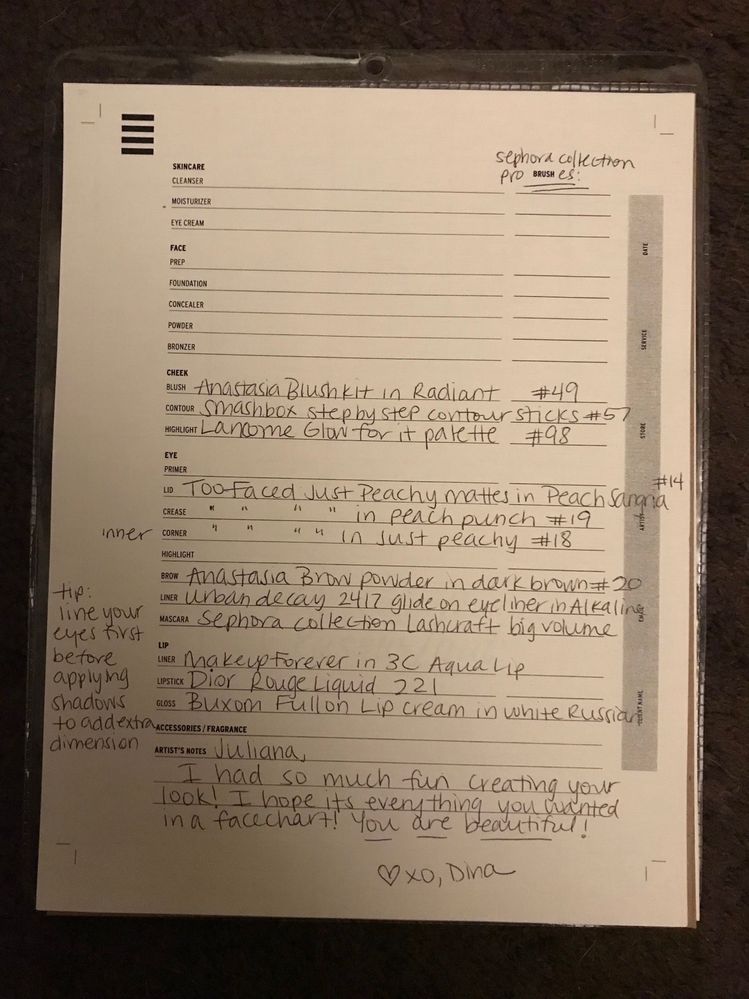 sephora collection
pro BRUSH es:
SKINCARE
CLEANSER
MOISTURIZER
EYE CREAM
FACE
PREP
FOUNDATION
CONCEALER
POWDER
BRONZER
CHEEK
BLUSH Anastasia Blush kit in Radiant #49
CONTOUR Smashbox step by step contour sticks #57
HIGHLIGHT Lancome Glow for it palette #98
EYE
PRIMER
#14
LID Too Faced Just Peachy mattes in Peach Sangria
CREASE " " " " in peach punch #19
inner CORNER " " " " in Just peachy #18
HIGHLIGHT
BROW Anastasia Brow powder in dark brown #20
LINER Urban decay 24/7 glide on eyeliner in Alkaline
MASCARA Sephora collection Lashcraft big volume
LIP
LINER Makeup Forever in 3C Aqua Lip
LIPSTICK Dior Rouge Liquid 221
GLOSS Buxom Full on Lip cream in white Russian
ACCESSORIES / FRAGRANCE
tip:
line your
eyes first
before
applying
shadows
to add extra
dimension
ARTIST'S NOTES Juliana,
I had so much fun creating your
look! I hope its everything you wanted
in a facechart! You are beautiful!
♡xo, Dina
DATE
SERVICE
STORE
ARTIST
EMAIL
CLIENT NAME